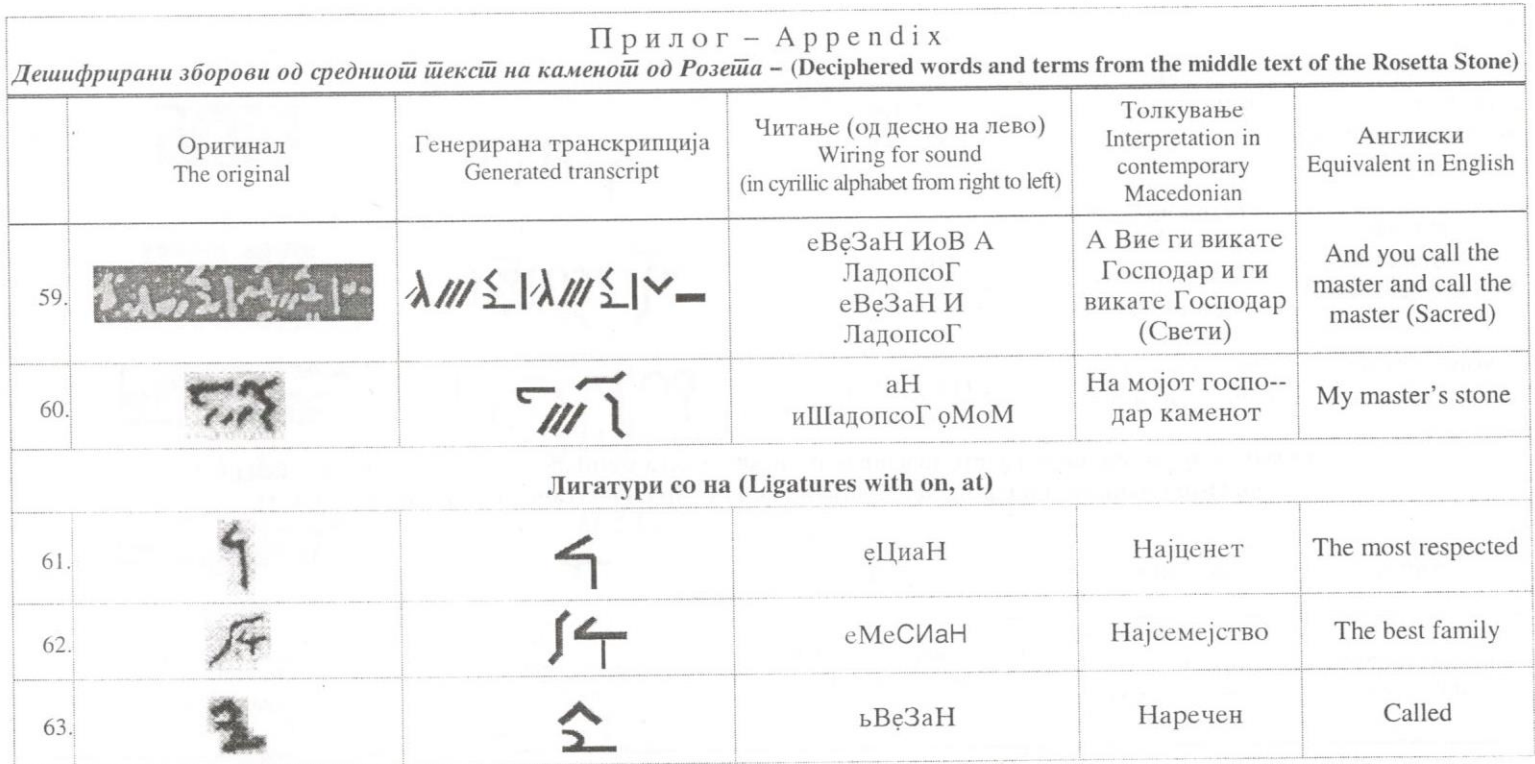 Прилог – Appendix
Дешифрирани зборови од средниот текст на каменот од Розета – (Deciphered words and terms from the middle text of the Rosetta Stone)
Оригинал
The original
Генерирана транскрипција
Generated transcript
Читање (од десно на лево)
Wiring for sound
(in cyrillic alphabet from right to left)
Толкување
Interpretation in
contemporary
Macedonian
Англиски
Equivalent in English
59.
еВẹЗаН ИоВ А
ЛадопсоГ
еВẹЗаН И
ЛадопсоГ
А Вие ги викате
Господар и ги
викате Господар
(Свети)
And you call the
master and call the
master (Sacred)
60.
аН
иШадопсоГ ọМоМ
На мојот госпо--
дар каменот
My master's stone
Лигатури со на (Ligatures with on, at)
61.
ẹЦиаН
Најценет
The most respected
62.
еМеСИаН
Најсемејство
The best family
63.
ьВẹЗаН
Наречен
Called